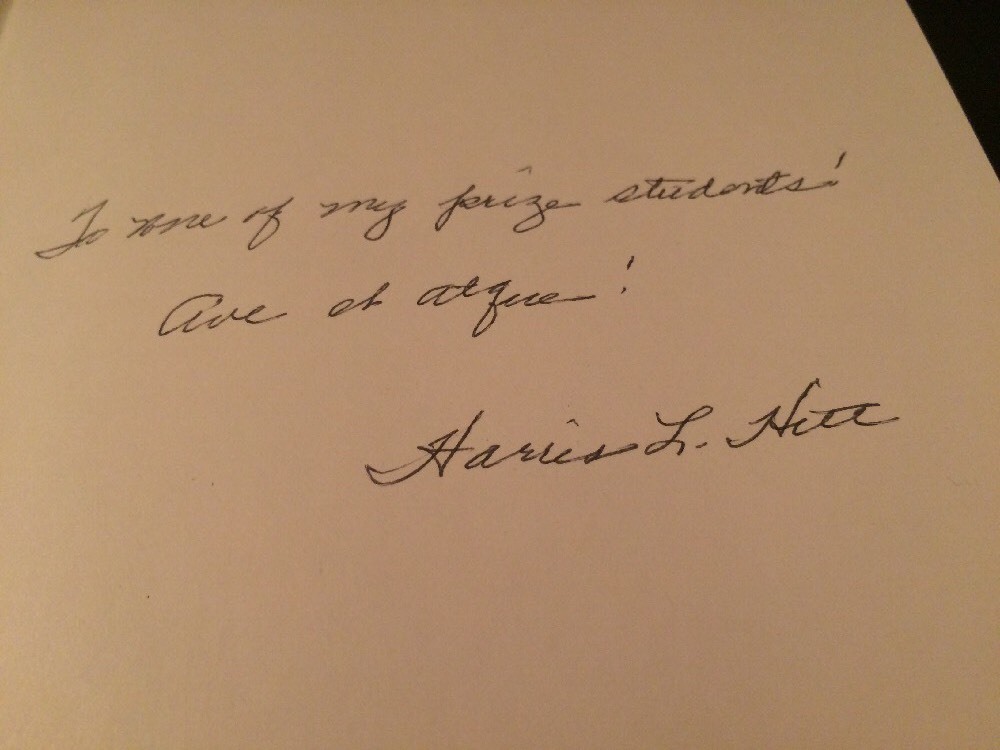 To one of my prize students!
Ave et atque!
Harris L. Hitt